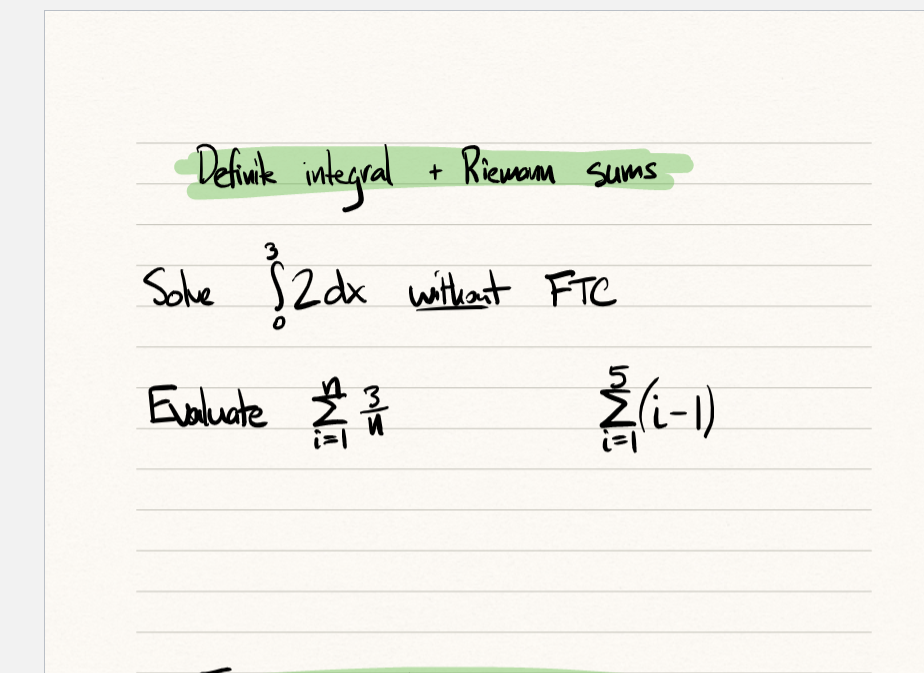 Definite integral + Riemann sums
Solve ∫₀³ 2dx without FTC
Evaluate ∑ᵢ₌₁ⁿ 3/n    ∑ᵢ₌₁⁵ (i-1)